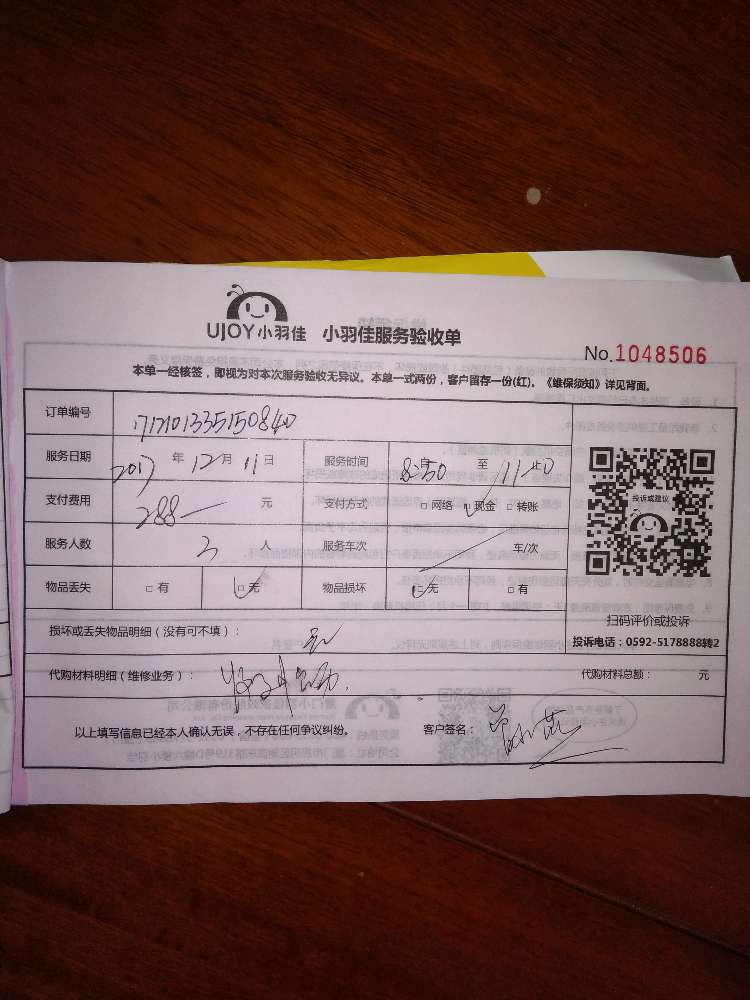 UJOY小羽佳 小羽佳服务验收单
No.1048506
本单一经核签，即视为对本次服务验收无异议。本单一式两份，客户留存一份(红)。《维保须知》详见背面。
订单编号 1712101335150840
服务日期 2017 年 12 月 11 日 服务时间 8:50 至 11:10
支付费用 288 元 支付方式 □网络 □现金 □转账
服务人数 3 人 服务车次 / 车/次
物品丢失 □有 □无 物品损坏 □无 □有
投诉或建议
扫码评价或投诉
投诉电话：0592-5178888转2
损坏或丢失物品明细（没有可不填）： 无
代购材料明细（维修业务）：
代购材料总额： 元
以上填写信息已经本人确认无误，不存在任何争议纠纷。 客户签名：